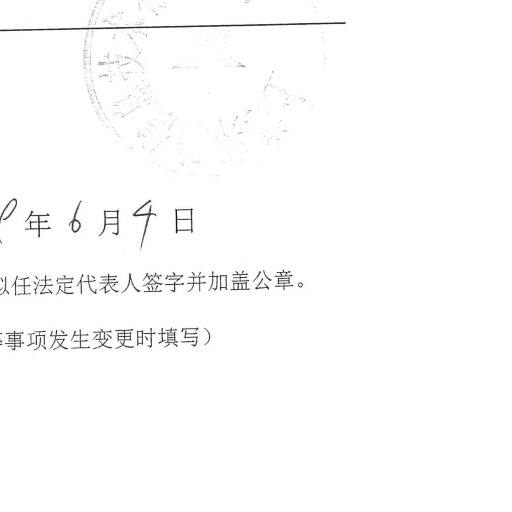 年6月4日
任法定代表人签字并加盖公章。
事项发生变更时填写）